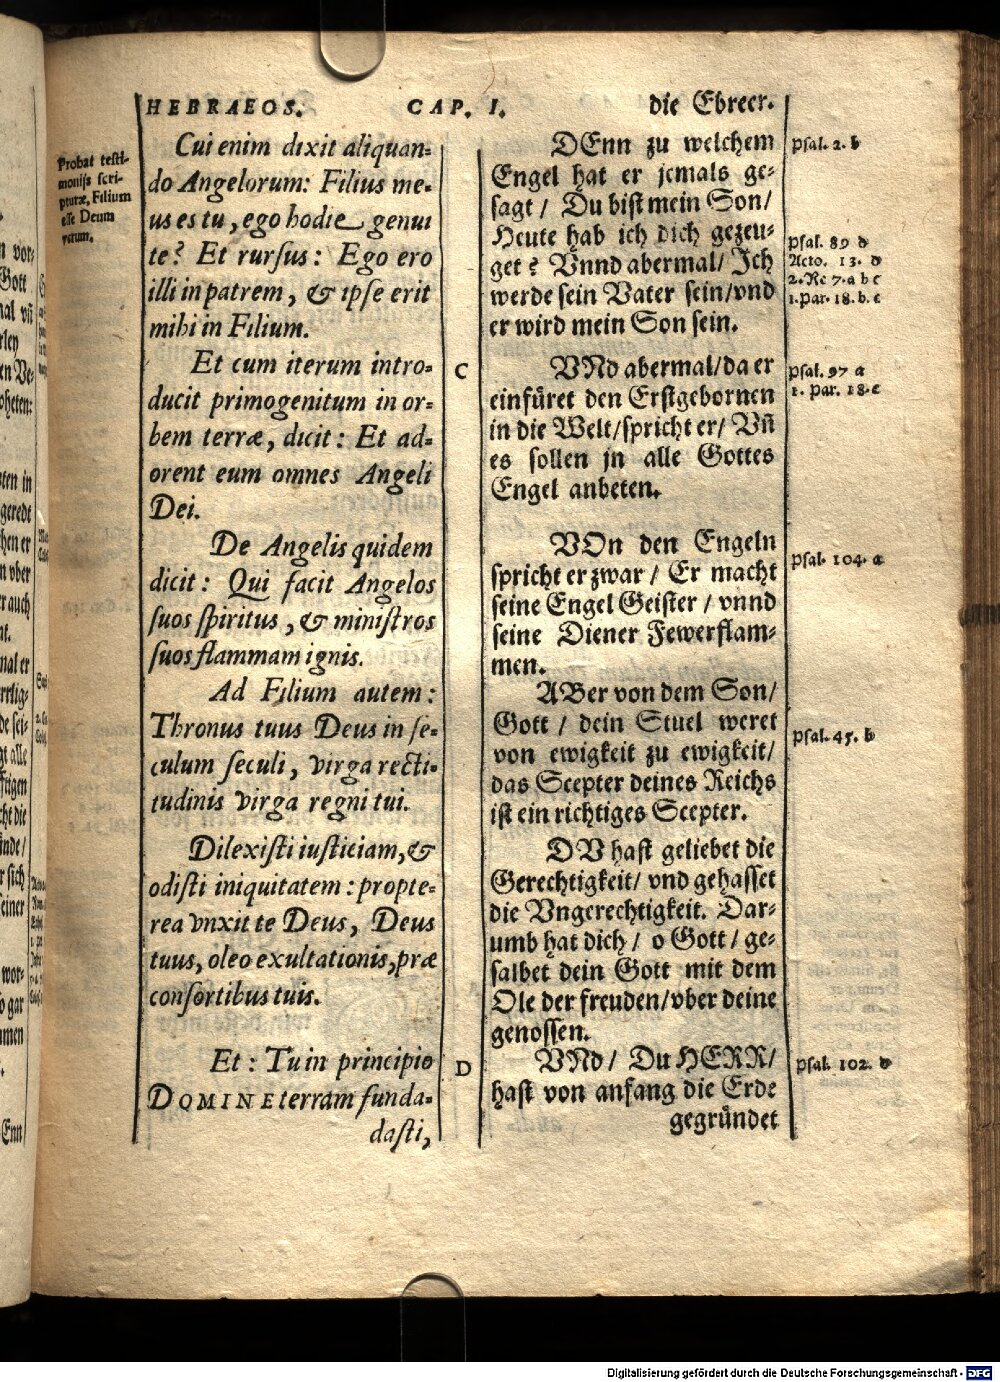 HEBRAEOS. CAP. I. die Ebreer.
Probat testi-
monijs scri-
pturæ, Filium
esse Deum
verum.
Cui enim dixit aliquan-
do Angelorum: Filius me-
us es tu, ego hodie genui
te? Et rursus: Ego ero
illi in patrem, & ipse erit
mihi in Filium.
Et cum iterum intro-
ducit primogenitum in or-
bem terræ, dicit: Et ad-
orent eum omnes Angeli
Dei.
De Angelis quidem
dicit: Qui facit Angelos
suos spiritus, & ministros
suos flammam ignis.
Ad Filium autem:
Thronus tuus Deus in se-
culum seculi, virga recti-
tudinis virga regni tui.
Dilexisti iusticiam, &
odisti iniquitatem: propte-
rea vnxit te Deus, Deus
tuus, oleo exultationis, præ
consortibus tuis.
Et: Tu in principio
DOMINE terram funda-
dasti,
C
D
DEnn zu welchem
Engel hat er jemals ge-
sagt / Du bist mein Son/
Heute hab ich dich gezeu-
get? Vnnd abermal/ Ich
werde sein Vater sein/vnd
er wird mein Son sein.
VNd abermal/da er
einfüret den Erstgebornen
in die Welt/spricht er/ Vñ
es sollen jn alle Gottes
Engel anbeten.
VOn den Engeln
spricht er zwar / Er macht
seine Engel Geister / vnnd
seine Diener Fewerflam-
men.
ABer von dem Son/
Gott / dein Stuel weret
von ewigkeit zu ewigkeit/
das Scepter deines Reichs
ist ein richtiges Scepter.
DV hast geliebet die
Gerechtigkeit/ vnd gehasset
die Vngerechtigkeit. Dar-
umb hat dich / o Gott / ge-
salbet dein Gott mit dem
Ole der freuden/vber deine
genossen.
VNd / Du HERR/
hast von anfang die Erde
gegründet
Psal. 2. b
Psal. 89 d
Acto. 13. d
2. Re 7. a b c
1. Par. 18. b. c
Psal. 97 a
1. Par. 18. c
Psal. 104. a
Psal. 45. b
Psal. 102. d
Digitalisierung gefördert durch die Deutsche Forschungsgemeinschaft - DFG